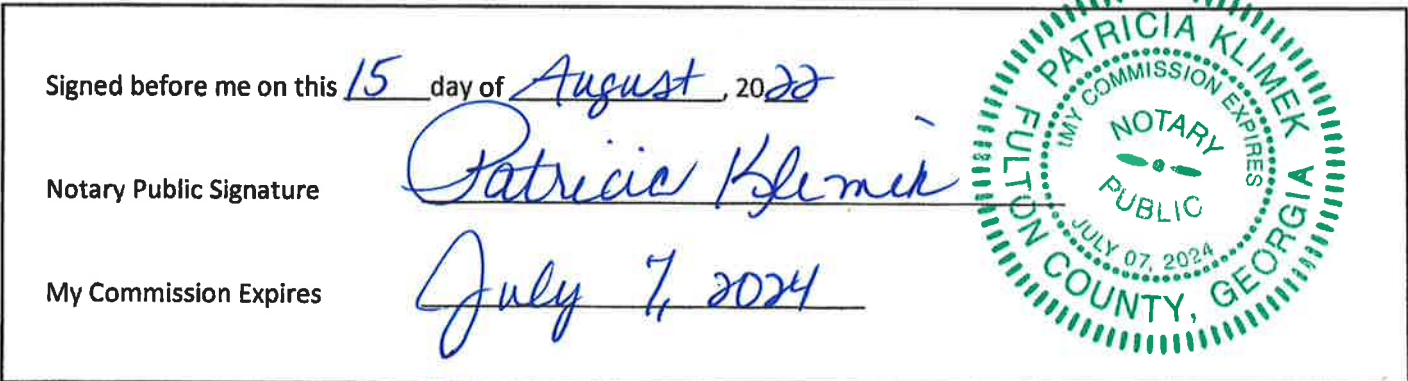 Signed before me on this 15 day of August, 2022
Notary Public Signature Patricia Klimek
My Commission Expires July 7, 2024
PATRICIA KLIMEK
MY COMMISSION EXPIRES
NOTARY
PUBLIC
JULY 07, 2024
FULTON COUNTY, GEORGIA